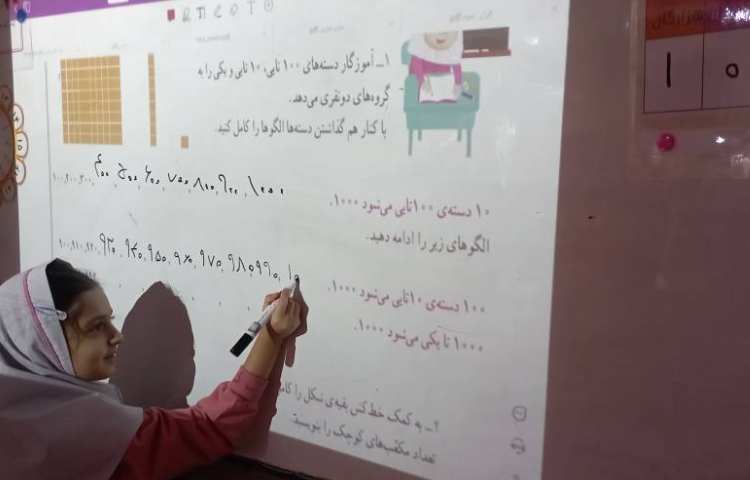 ۱ــ آموزگار دسته‌های ۱۰۰ تایی، ۱۰ تایی و یکی را به
گروه‌های دونفری می‌دهد.
با کنار هم گذاشتن دسته‌ها الگوها را کامل کنید.
۱۰۰,۲۰۰,۳۰۰, ۴۰۰, ۵۰۰, ۶۰۰, ۷۰۰, ۸۰۰, ۹۰۰, ۱۰۰۰
۱۰ دسته‌ی ۱۰۰تایی می‌شود ۱۰۰۰.
الگوهای زیر را ادامه دهید.
۹۰۰,۹۱۰,۹۲۰, ۹۳۰, ۹۴۰, ۹۵۰, ۹۶۰, ۹۷۰, ۹۸۰, ۹۹۰, ۱۰
۱۰۰ دسته‌ی ۱۰تایی می‌شود ۱۰۰۰.
۱۰۰۰ تا یکی می‌شود ۱۰۰۰.
۲ــ به کمک خط‌کش بقیه‌ی شکل را کامل
تعداد مکعب‌های کوچک را بنویسید.
هزارگان
۱ ۰